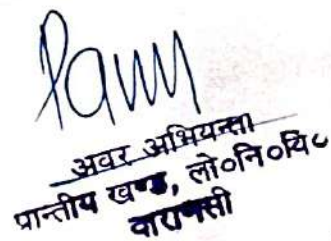 अवर अभियन्ता
प्रान्तीय खण्ड, लो०नि०वि०
वाराणसी